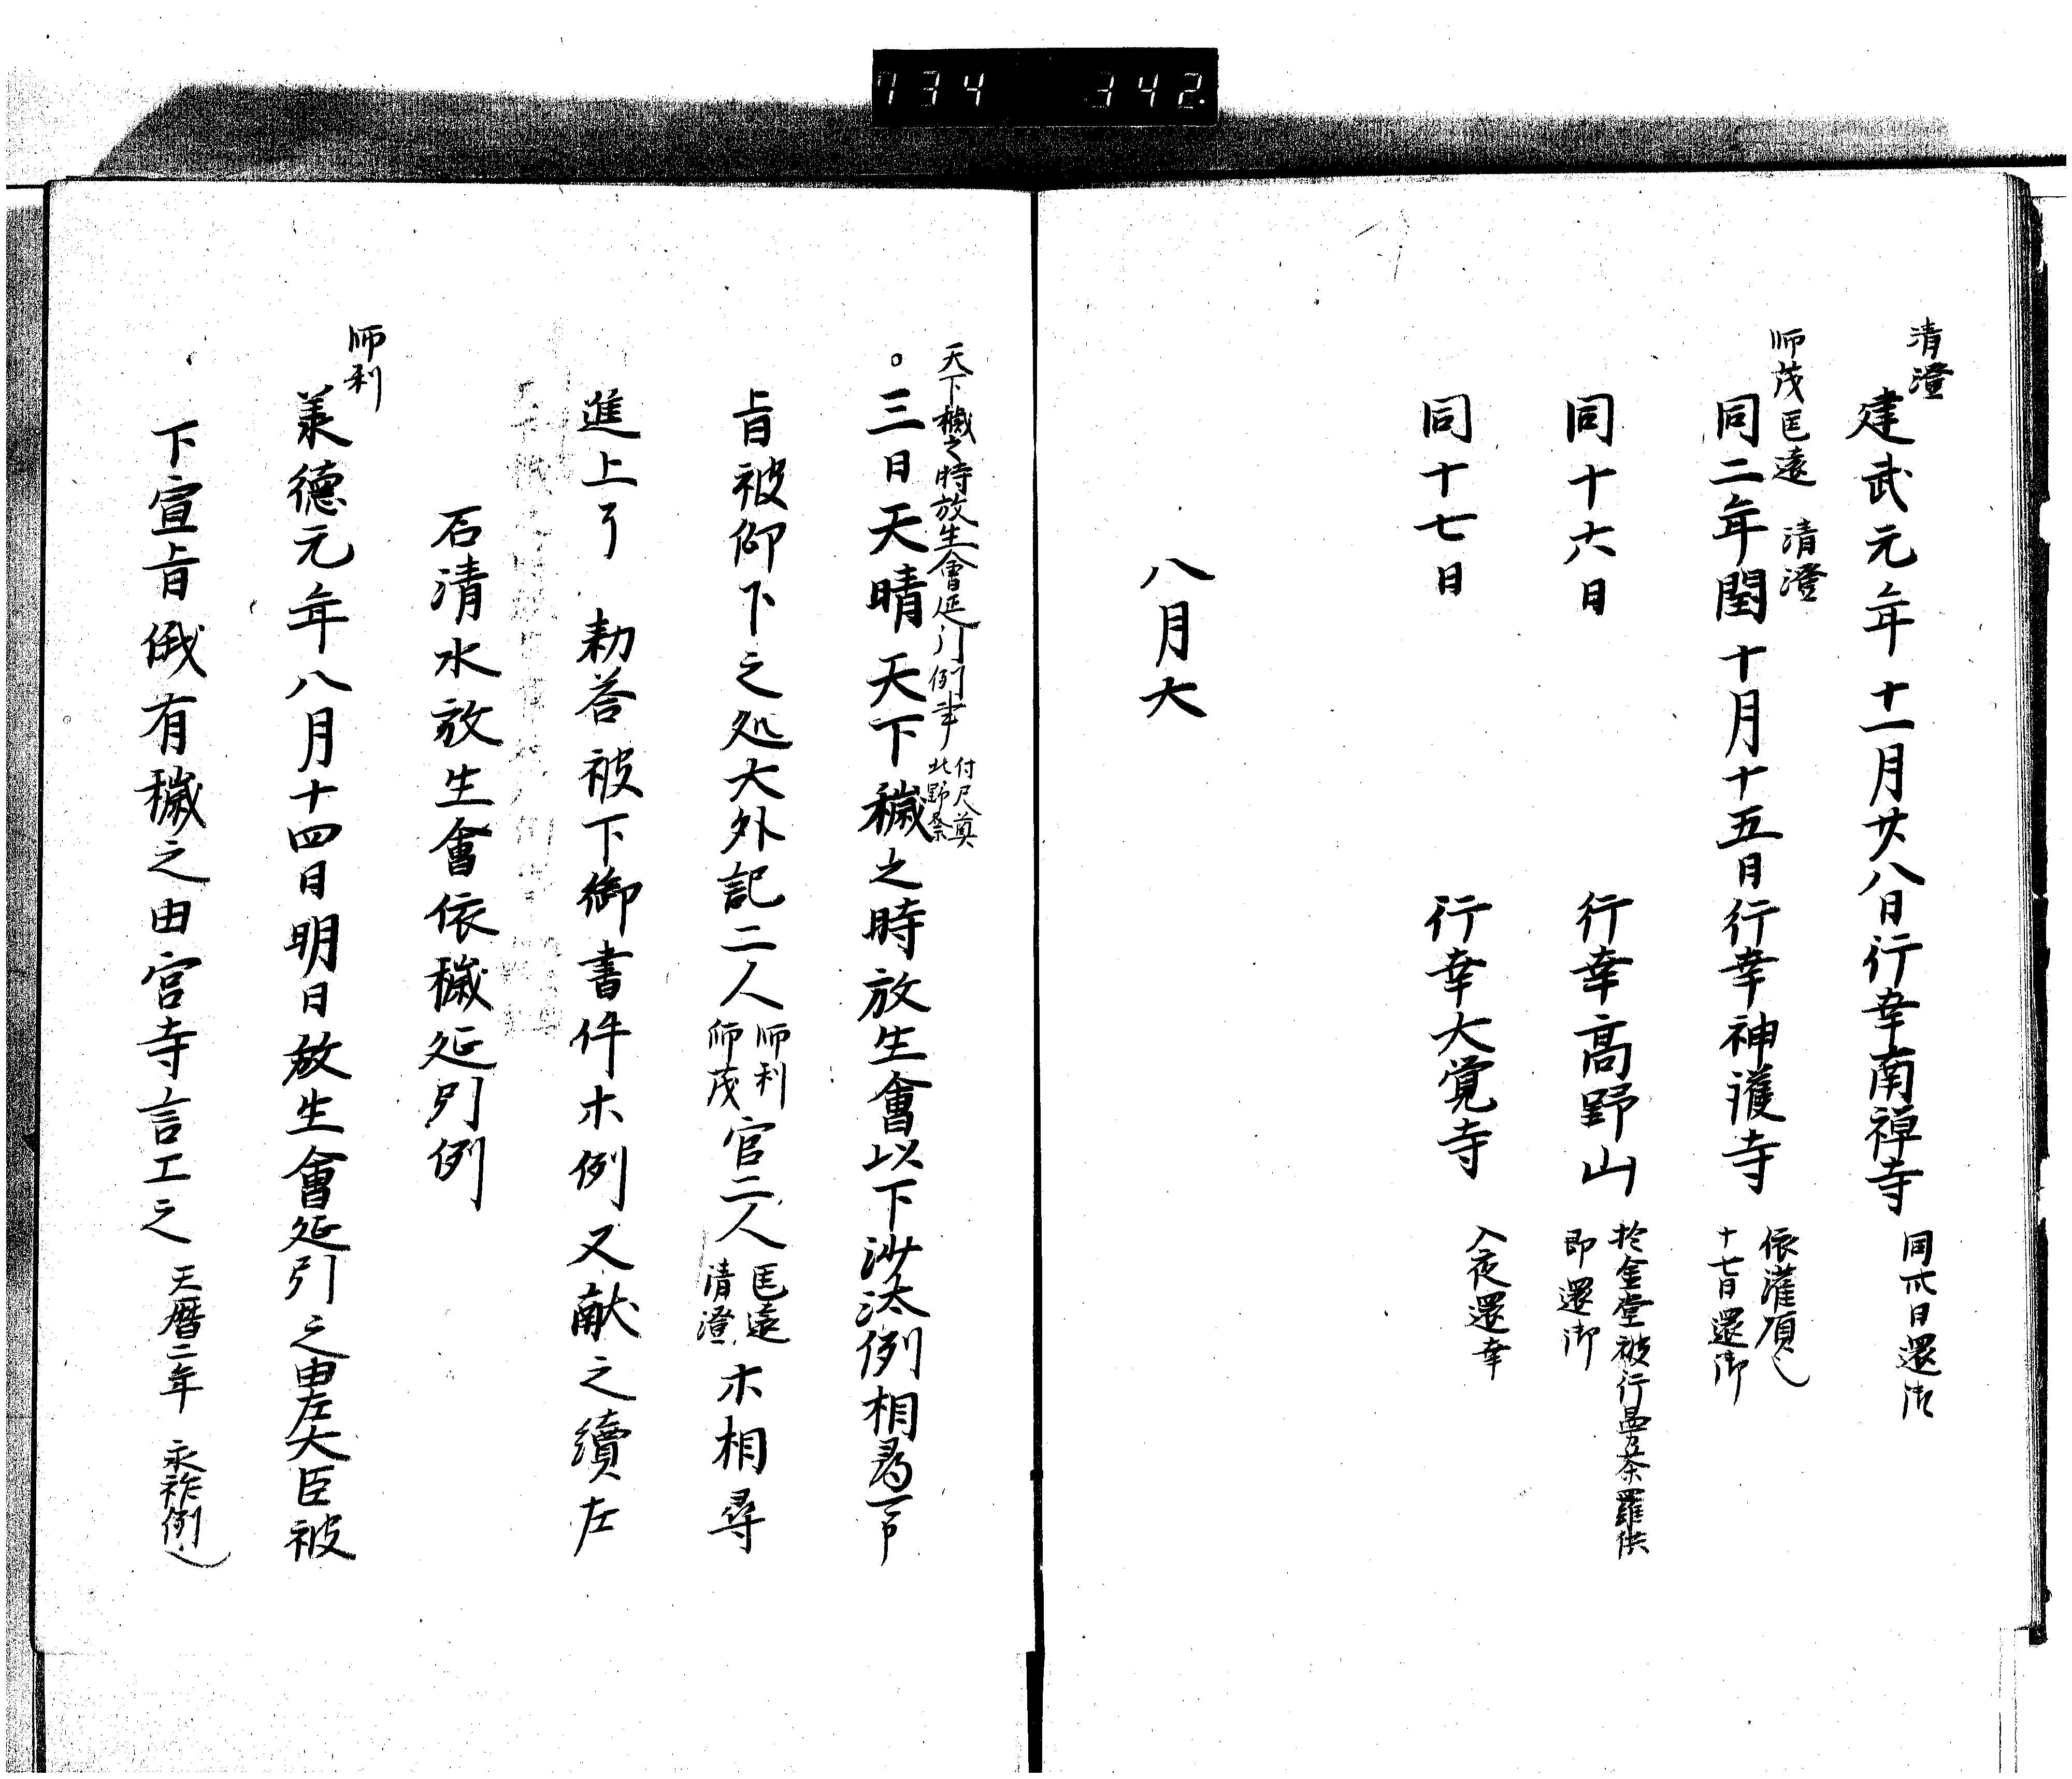 734 342
清澄
建武元年十一月廿八日行幸南禅寺 同卅日還御
師茂 匡遠 清澄
同二年閏十月十五日行幸神護寺 依灌頂也 十七日還御
同十六日 行幸高野山 於金堂被行曼荼羅供 即還御
同十七日 行幸大覚寺 入夜還幸
八月大
天下穢之時放生會延引例事 付尺奠 北野祭
。三日天晴天下穢之時放生會以下沙汰例相尋可
旨被仰下之処大外記二人 師利 師茂 官二人 匡遠 清澄 木相尋
進上了 勅答被下御書件木例又献之續左
石清水放生會依穢延引例
師利
美德元年八月十四日明日放生會延引之由左大臣被
下宣旨俄有穢之由宮寺言上之 天暦二年 永祚例也